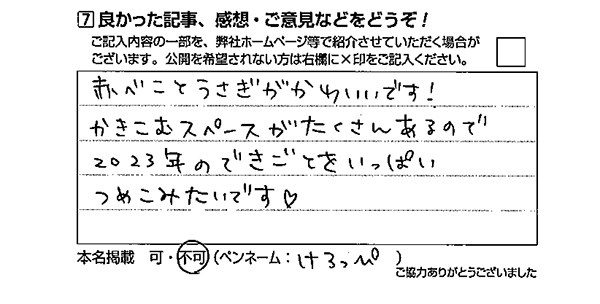 7 良かった記事、感想・ご意見などをどうぞ！
ご記入内容の一部を、弊社ホームページ等で紹介させていただく場合が
ございます。公開を希望されない方は右欄に×印をご記入ください。
赤べことうさぎがかわいいです！
かきこむスペースがたくさんあるので
2023年のできごとをいっぱい
つめこみたいです♡
本名掲載　可・不可（ペンネーム：けろっぴ）
ご協力ありがとうございました